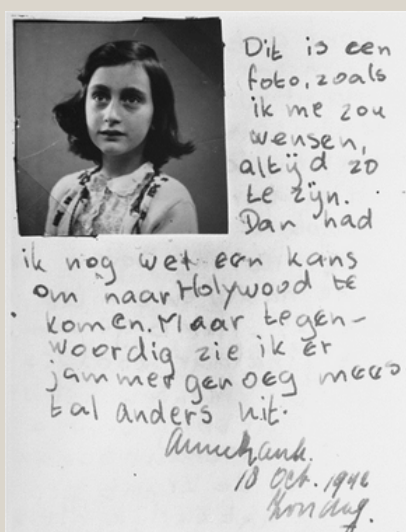 Dit is een
foto, zoals
ik me zou
wensen,
altijd zo
te zijn.
Dan had
ik nog wel een kans
om naar Holywood te
komen. Maar tegen-
woordig zie ik er
jammer genoeg mees
tal anders uit.
Annefrank.
18 Oct. 1942
Zondag.